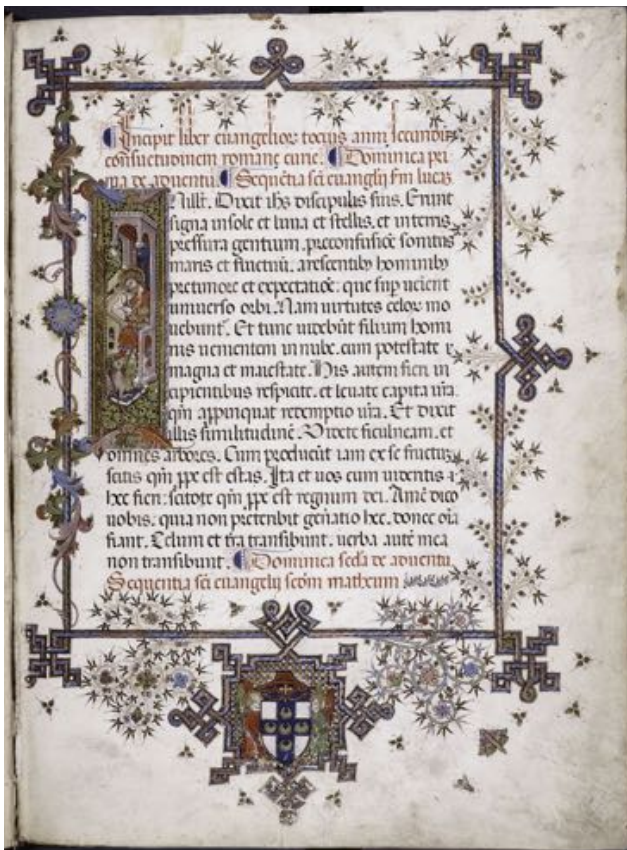 Incipit liber euangelioꝝ tocius anni secundū
consuetudinem romane curie. Dominica pri
ma de aduentu. Sequētia sči euangelij s̄m lucaȝ
In illo. Dixit ihs discipulis suis. Erunt
signa in sole et luna et stellis, et in terris
pressura gentium, pre confusiōe sonitus
maris et fluctuū, arescentibȝ hominibȝ
pre timore et expectatiōe: que sup uenient
uniuerso orbi. Nam uirtutes celoꝝ mo
uebunt. Et tunc uidebūt filium homi
nis uenientem in nube, cum potestate
magna et maiestate. His autem fieri in
cipientibus respicite, et leuate capita ūra.
qm̄ appinquat redemptio ūra. Et dixit
illis similitudinē. Videte ficulneam, et
omnes arbores. Cum producūt iam ex se fructuȝ
scitis qm̄ ꝓpe est estas. Ita et uos cum uideritis
hec fieri: scitote qm̄ ꝓpe est regnum dei. Amē dico
uobis, quia non preteribit gen̄atio hec, donec oīa
fiant. Celum et t̄ra transibunt, uerba autē mea
non transibunt. Dominica scđa de aduentu
Sequentia sči euangelij scđm matheum